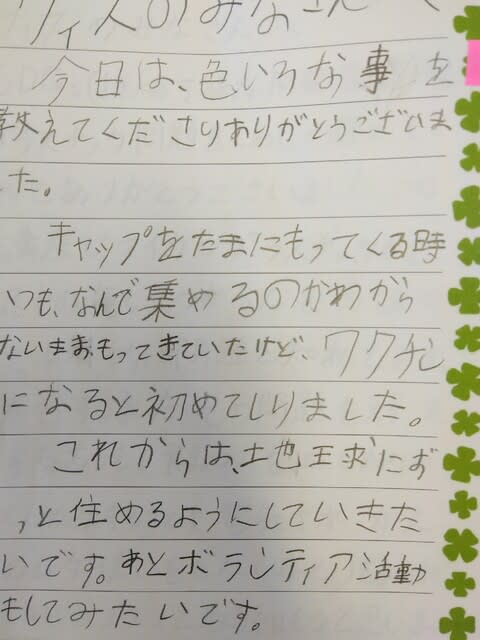 ヴィ人のみなさんへ
今日は、色いろな事を
教えてくださりありがとうございま
した。
キャップをたまにもってくる時
いつも、なんで集めるのかわから
ないまま、もってきていたけど、ワクチン
になると初めてしりました。
これからは、土也王求にず
っと住めるようにしていきた
いです。あとボランティア活動
もしてみたいです。